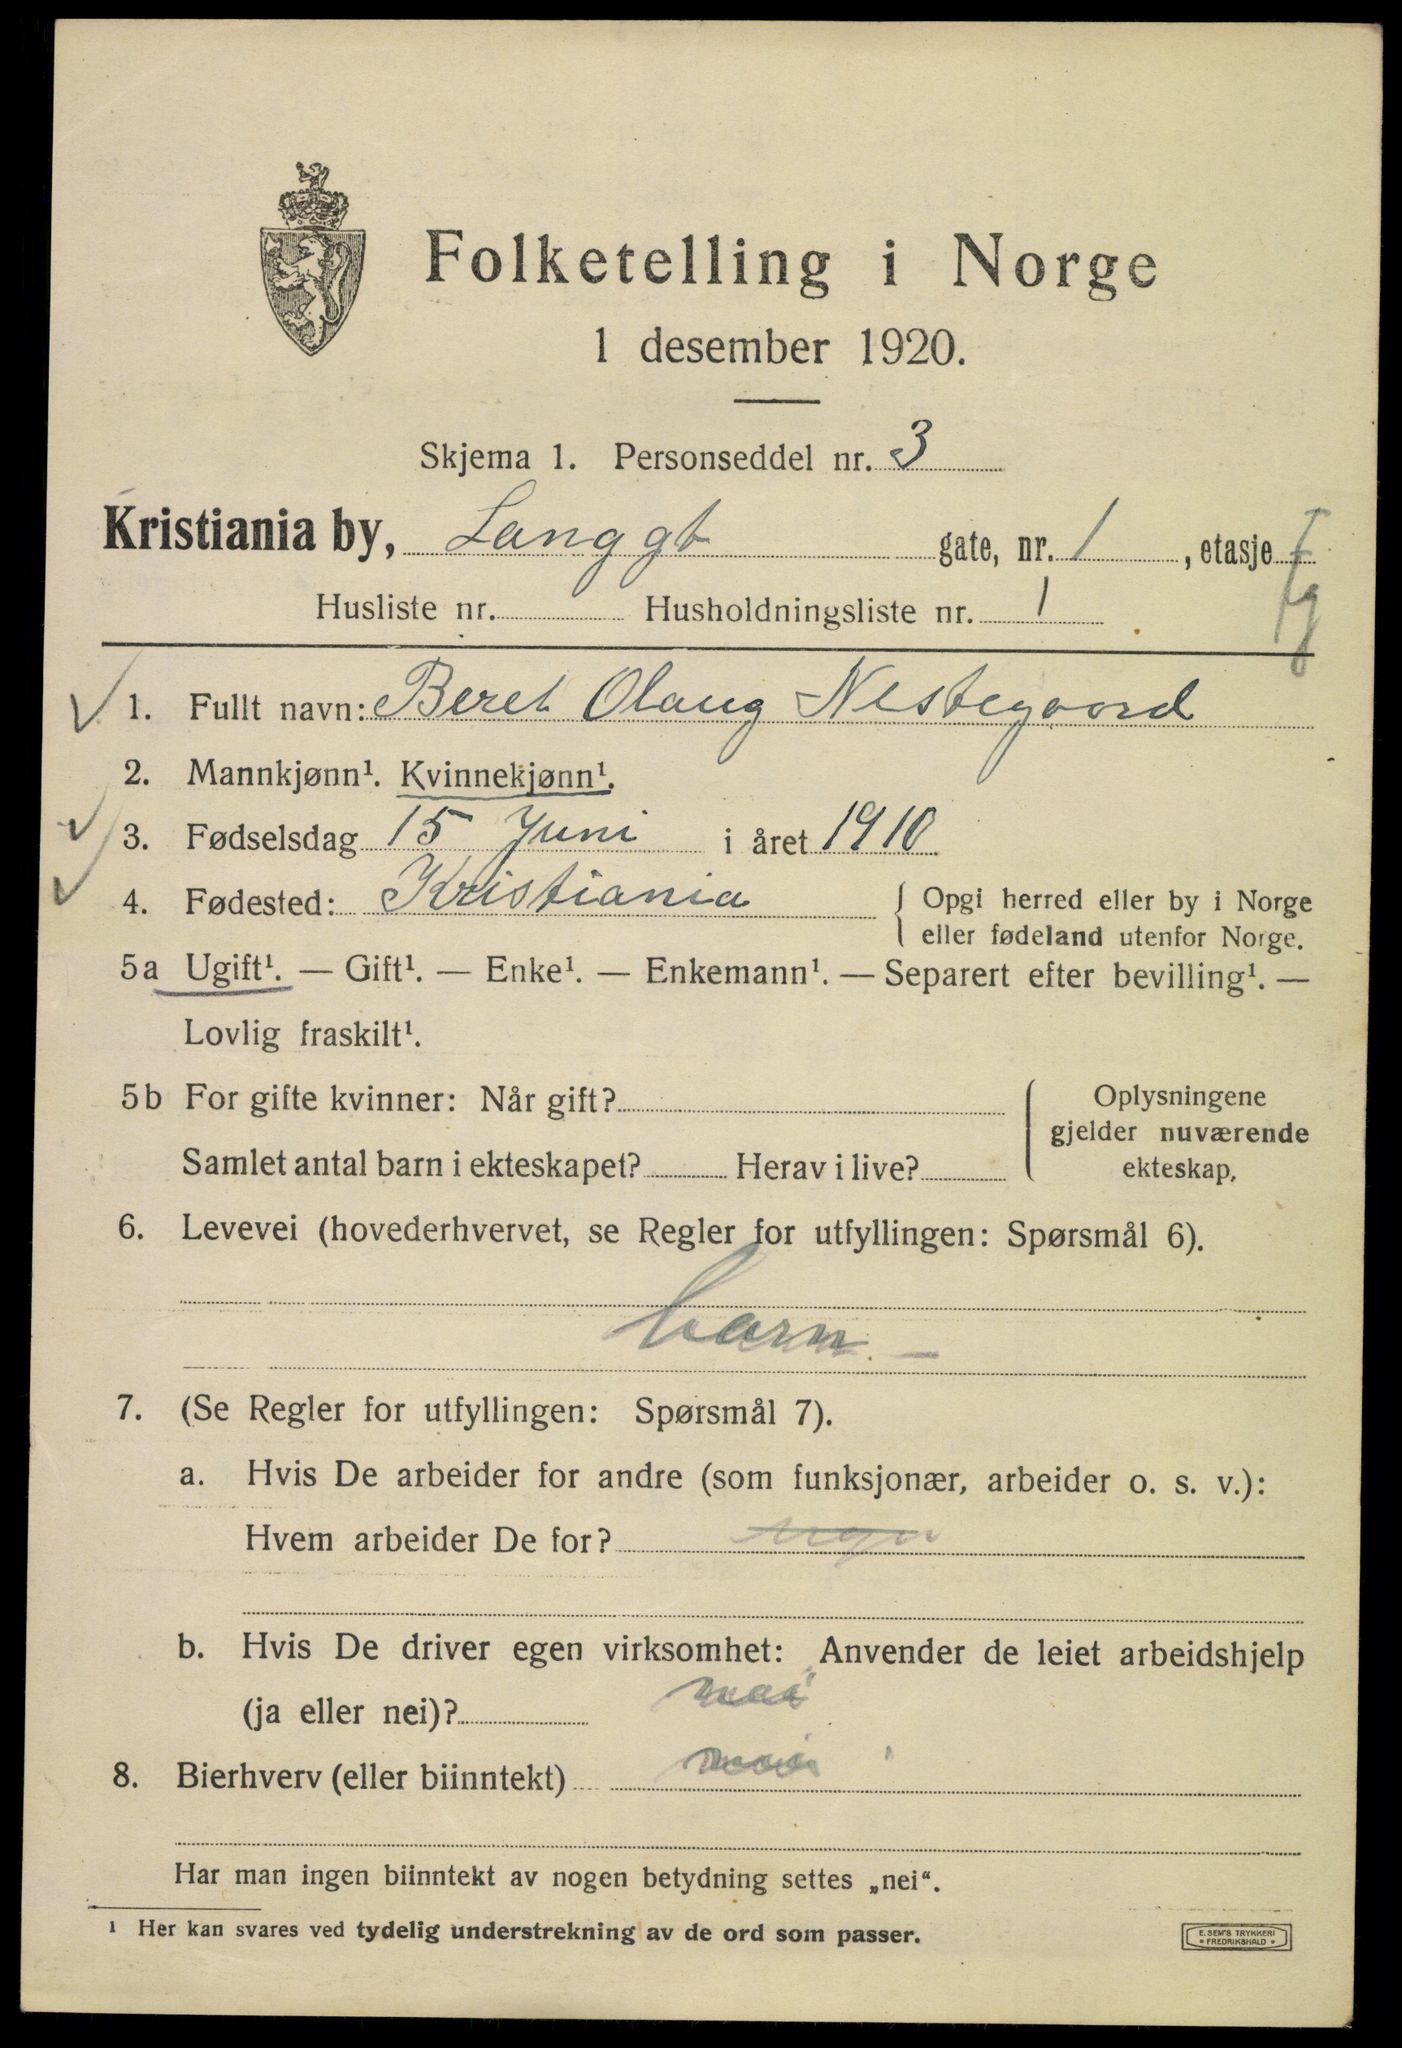 Folketelling i Norge
1 desember 1920.
Skjema 1. Personseddel nr. 3
Kristiania by, Langgt gate, nr. 1, etasje I
Husliste nr. Husholdningsliste nr. 1
1. Fullt navn: Beret Olaug Nestegaard
2. Mannkjønn¹. Kvinnekjønn¹.
3. Fødselsdag 15 Juni i året 1910
4. Fødested: Kristiania { Opgi herred eller by i Norge
eller fødeland utenfor Norge.
5a Ugift¹. — Gift¹. — Enke¹. — Enkemann¹. — Separert efter bevilling¹. —
Lovlig fraskilt¹.
5b For gifte kvinner: Når gift?
Samlet antal barn i ekteskapet? Herav i live?
Oplysningene
gjelder nuværende
ekteskap,
6. Levevei (hovederhvervet, se Regler for utfyllingen: Spørsmål 6).
barn. —
7. (Se Regler for utfyllingen: Spørsmål 7).
a. Hvis De arbeider for andre (som funksjonær, arbeider o. s. v.):
Hvem arbeider De for?
b. Hvis De driver egen virksomhet: Anvender de leiet arbeidshjelp
(ja eller nei)? nei
8. Bierhverv (eller biinntekt) nei
Har man ingen biinntekt av nogen betydning settes „nei“.
¹ Her kan svares ved tydelig understrekning av de ord som passer.
E. SEM'S TRYKKERI
• FREDRIKSHALD •